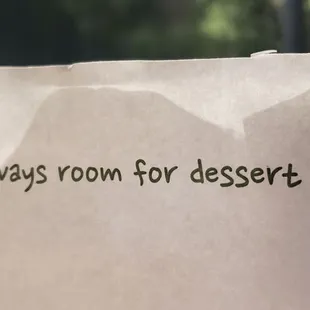 ways room for dessert